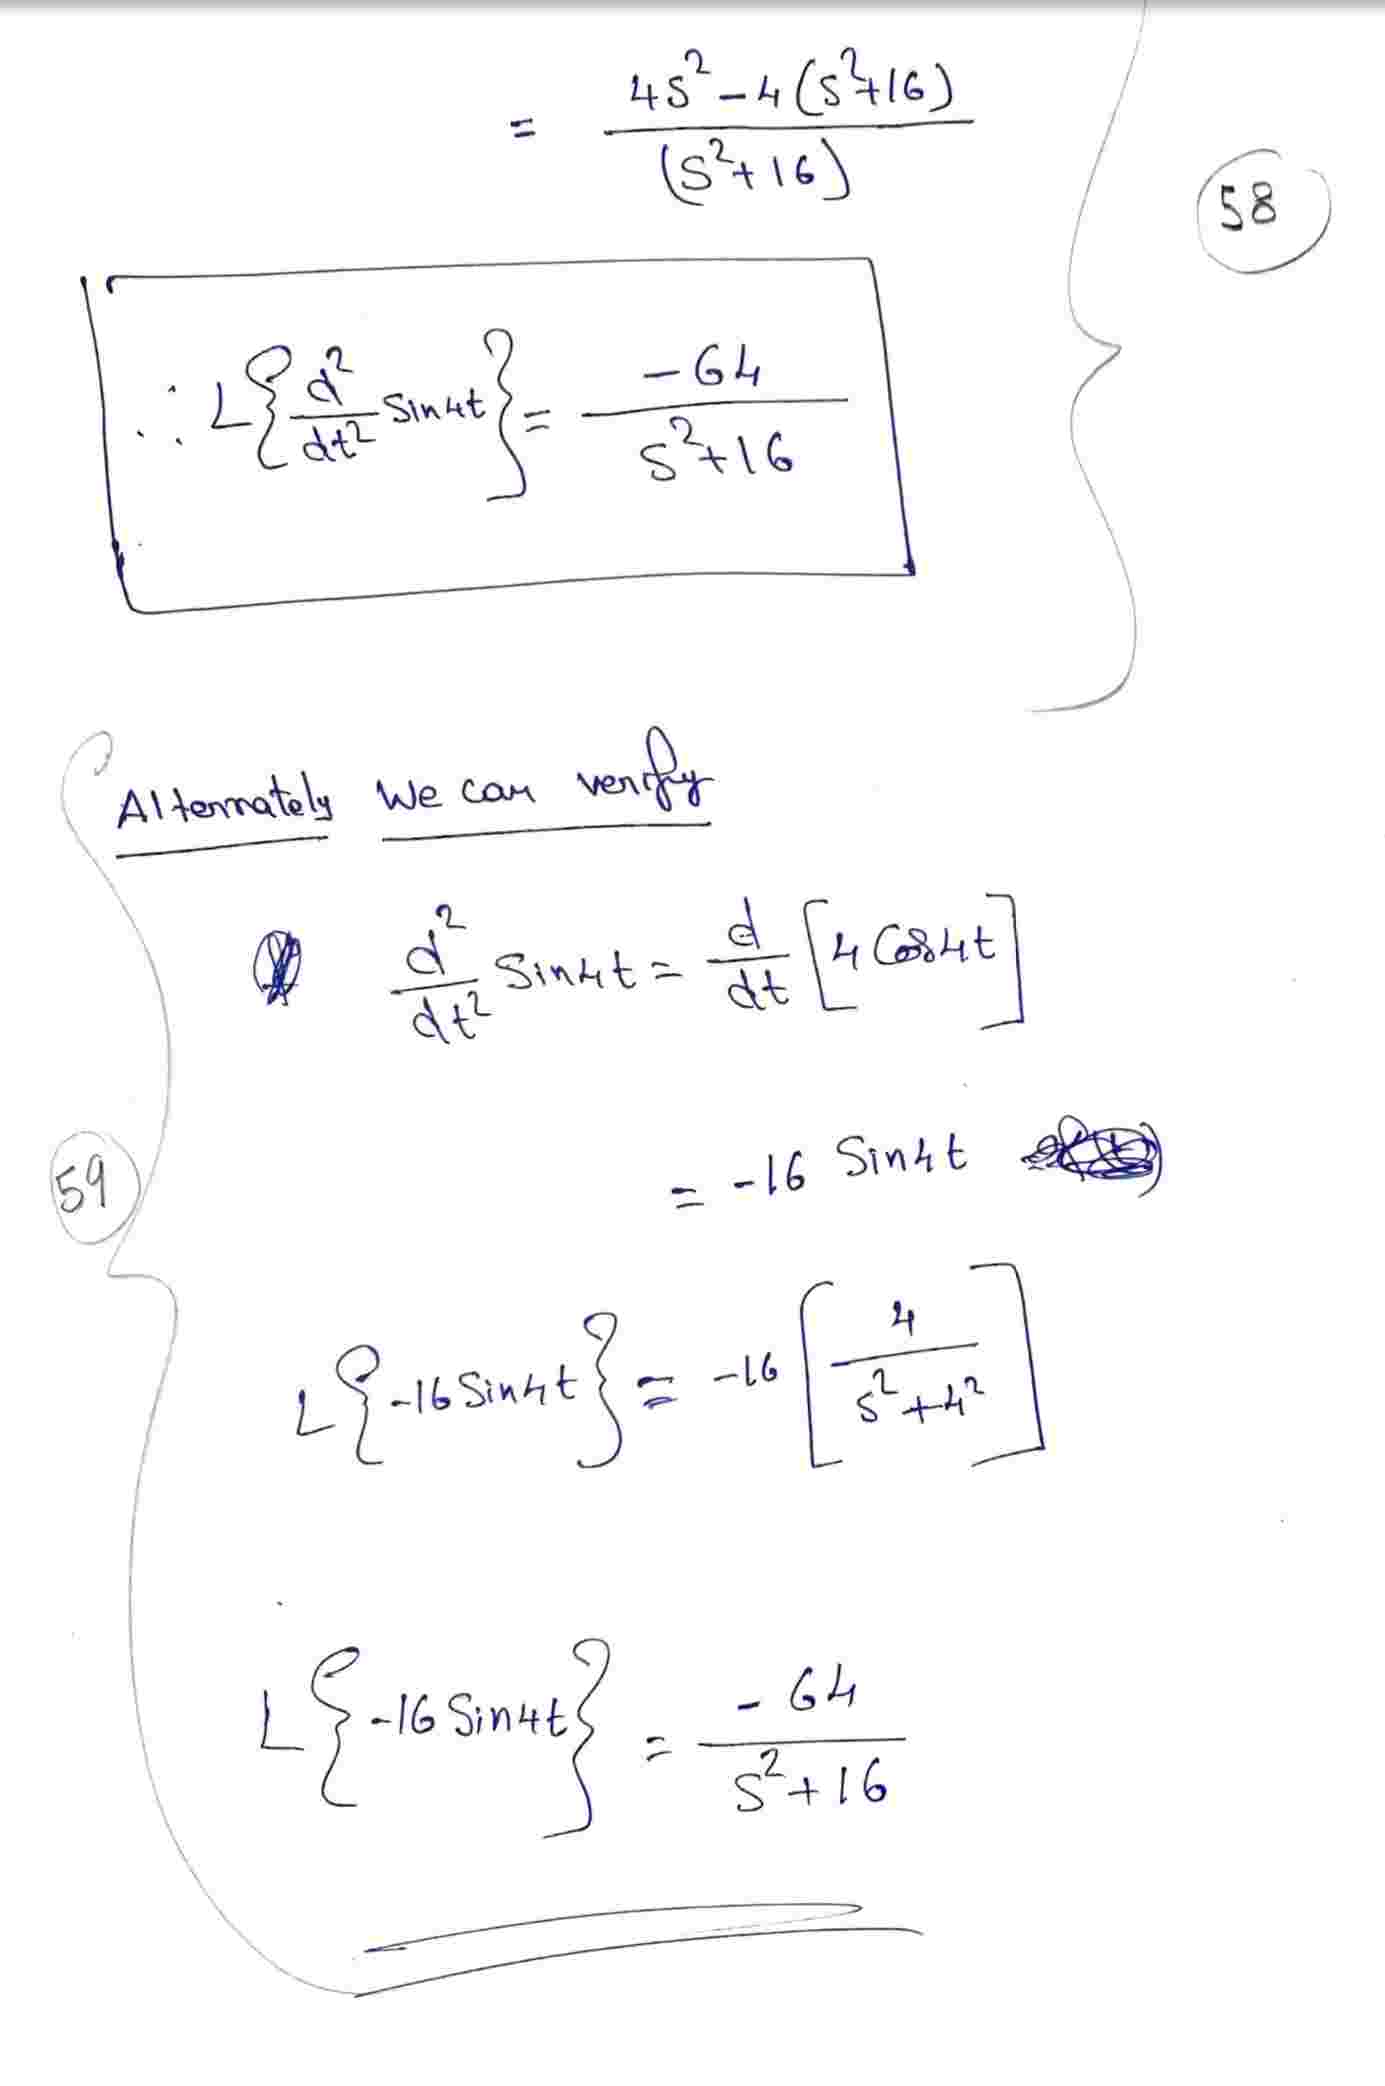 = (4s² - 4(s²+16)) / (s²+16)
58
∴ L{d²/dt² Sin4t} = -64 / (s²+16)
Alternately We can verify
d²/dt² Sin4t = d/dt [4 Cos4t]
= -16 Sin4t
59
L{-16 Sin4t} = -16 [4 / (s²+4²)]
L{-16 Sin4t} = -64 / (s²+16)